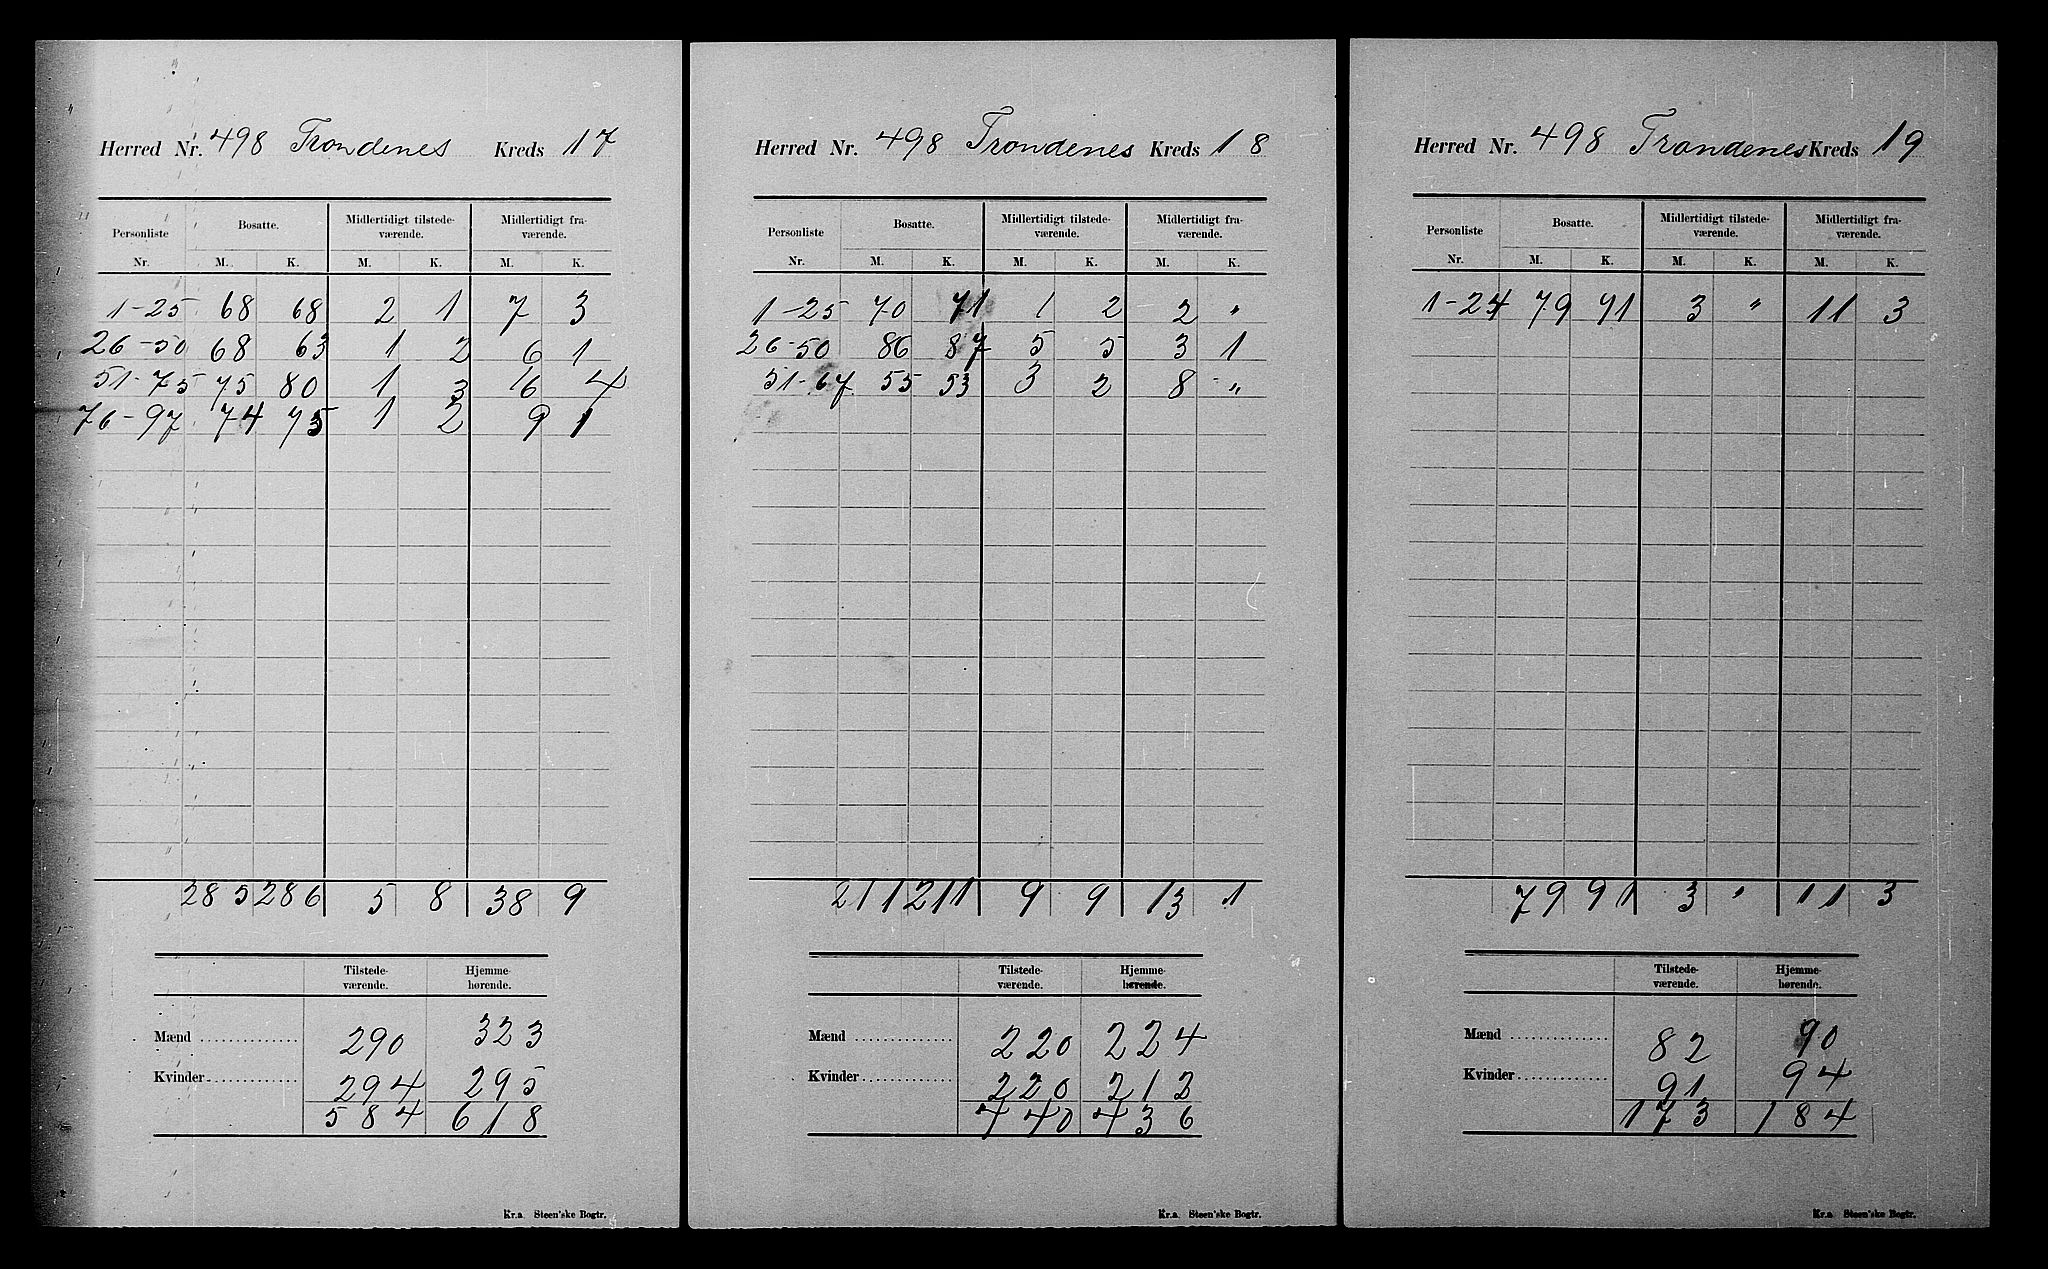 Herred Nr. 498 Trondenes Kreds 17
Personliste Bosatte. Midlertidigt tilstede-værende. Midlertidigt fra-værende.
Nr. M. K. M. K. M. K.
1-25 68 68 2 1 7 3
26-50 68 63 1 2 6 1
51-75 75 80 1 3 16 4
76-97 74 75 1 2 9 1
285 286 5 8 38 9
Tilstede-værende. Hjemme-hørende.
Mænd 290 323
Kvinder 294 295
584 618
Kr.a Steen'ske Bogtr.
Herred Nr. 498 Trondenes Kreds 18
Personliste Bosatte. Midlertidigt tilstede-værende. Midlertidigt fra-værende.
Nr. M. K. M. K. M. K.
1-25 70 71 1 2 2 "
26-50 86 87 5 5 3 1
51-67 55 53 3 2 8 "
211 211 9 9 13 1
Tilstede-værende. Hjemme-hørende.
Mænd 220 224
Kvinder 220 212
440 436
Kr.a Steen'ske Bogtr.
Herred Nr. 498 Trondenes Kreds 19
Personliste Bosatte. Midlertidigt tilstede-værende. Midlertidigt fra-værende.
Nr. M. K. M. K. M. K.
1-24 79 91 3 " 11 3
79 91 3 " 11 3
Tilstede-værende. Hjemme-hørende.
Mænd 82 90
Kvinder 91 94
173 184
Kr.a Steen'ske Bogtr.